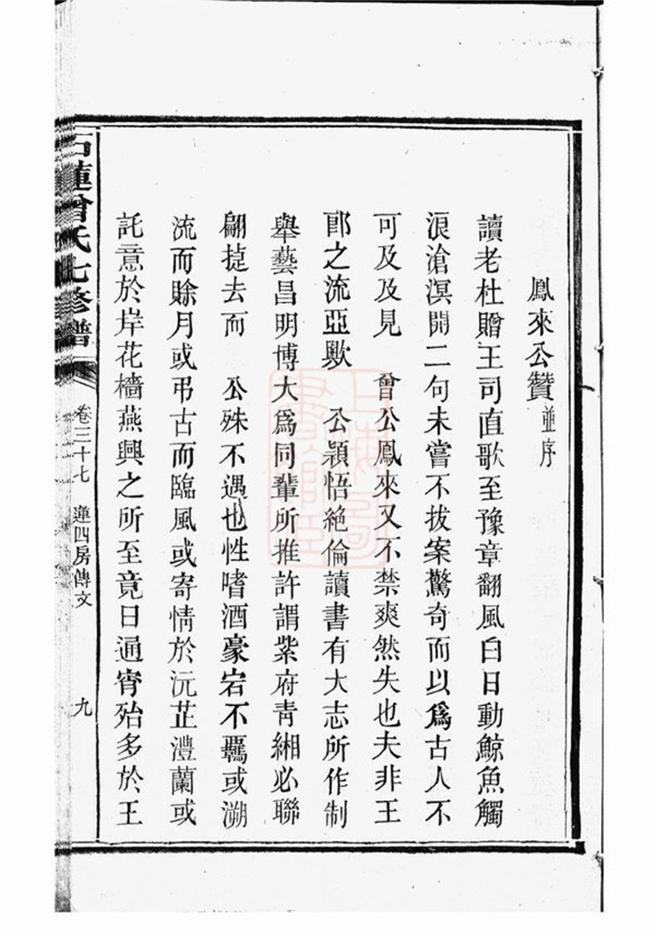 鳳來公贊並序
讀老杜贈王司直歌至豫章翻風白日動鯨魚觸
浪滄溟開二句未嘗不拔案驚奇而以爲古人不
可及及見 曾公鳳來又不禁爽然失也夫非王
郎之流亞歟 公穎悟絕倫讀書有大志所作制
舉藝昌明博大爲同輩所推許謂紫府青緗必聯
翩捷去而 公殊不遇也性嗜酒豪宕不羈或溯
流而賒月或弔古而臨風或寄情於沅芷澧蘭或
託意於岸花檣燕興之所至竟日通宵殆多於王
石蓮曾氏七修譜
卷三十七 蓮四房傳文
九